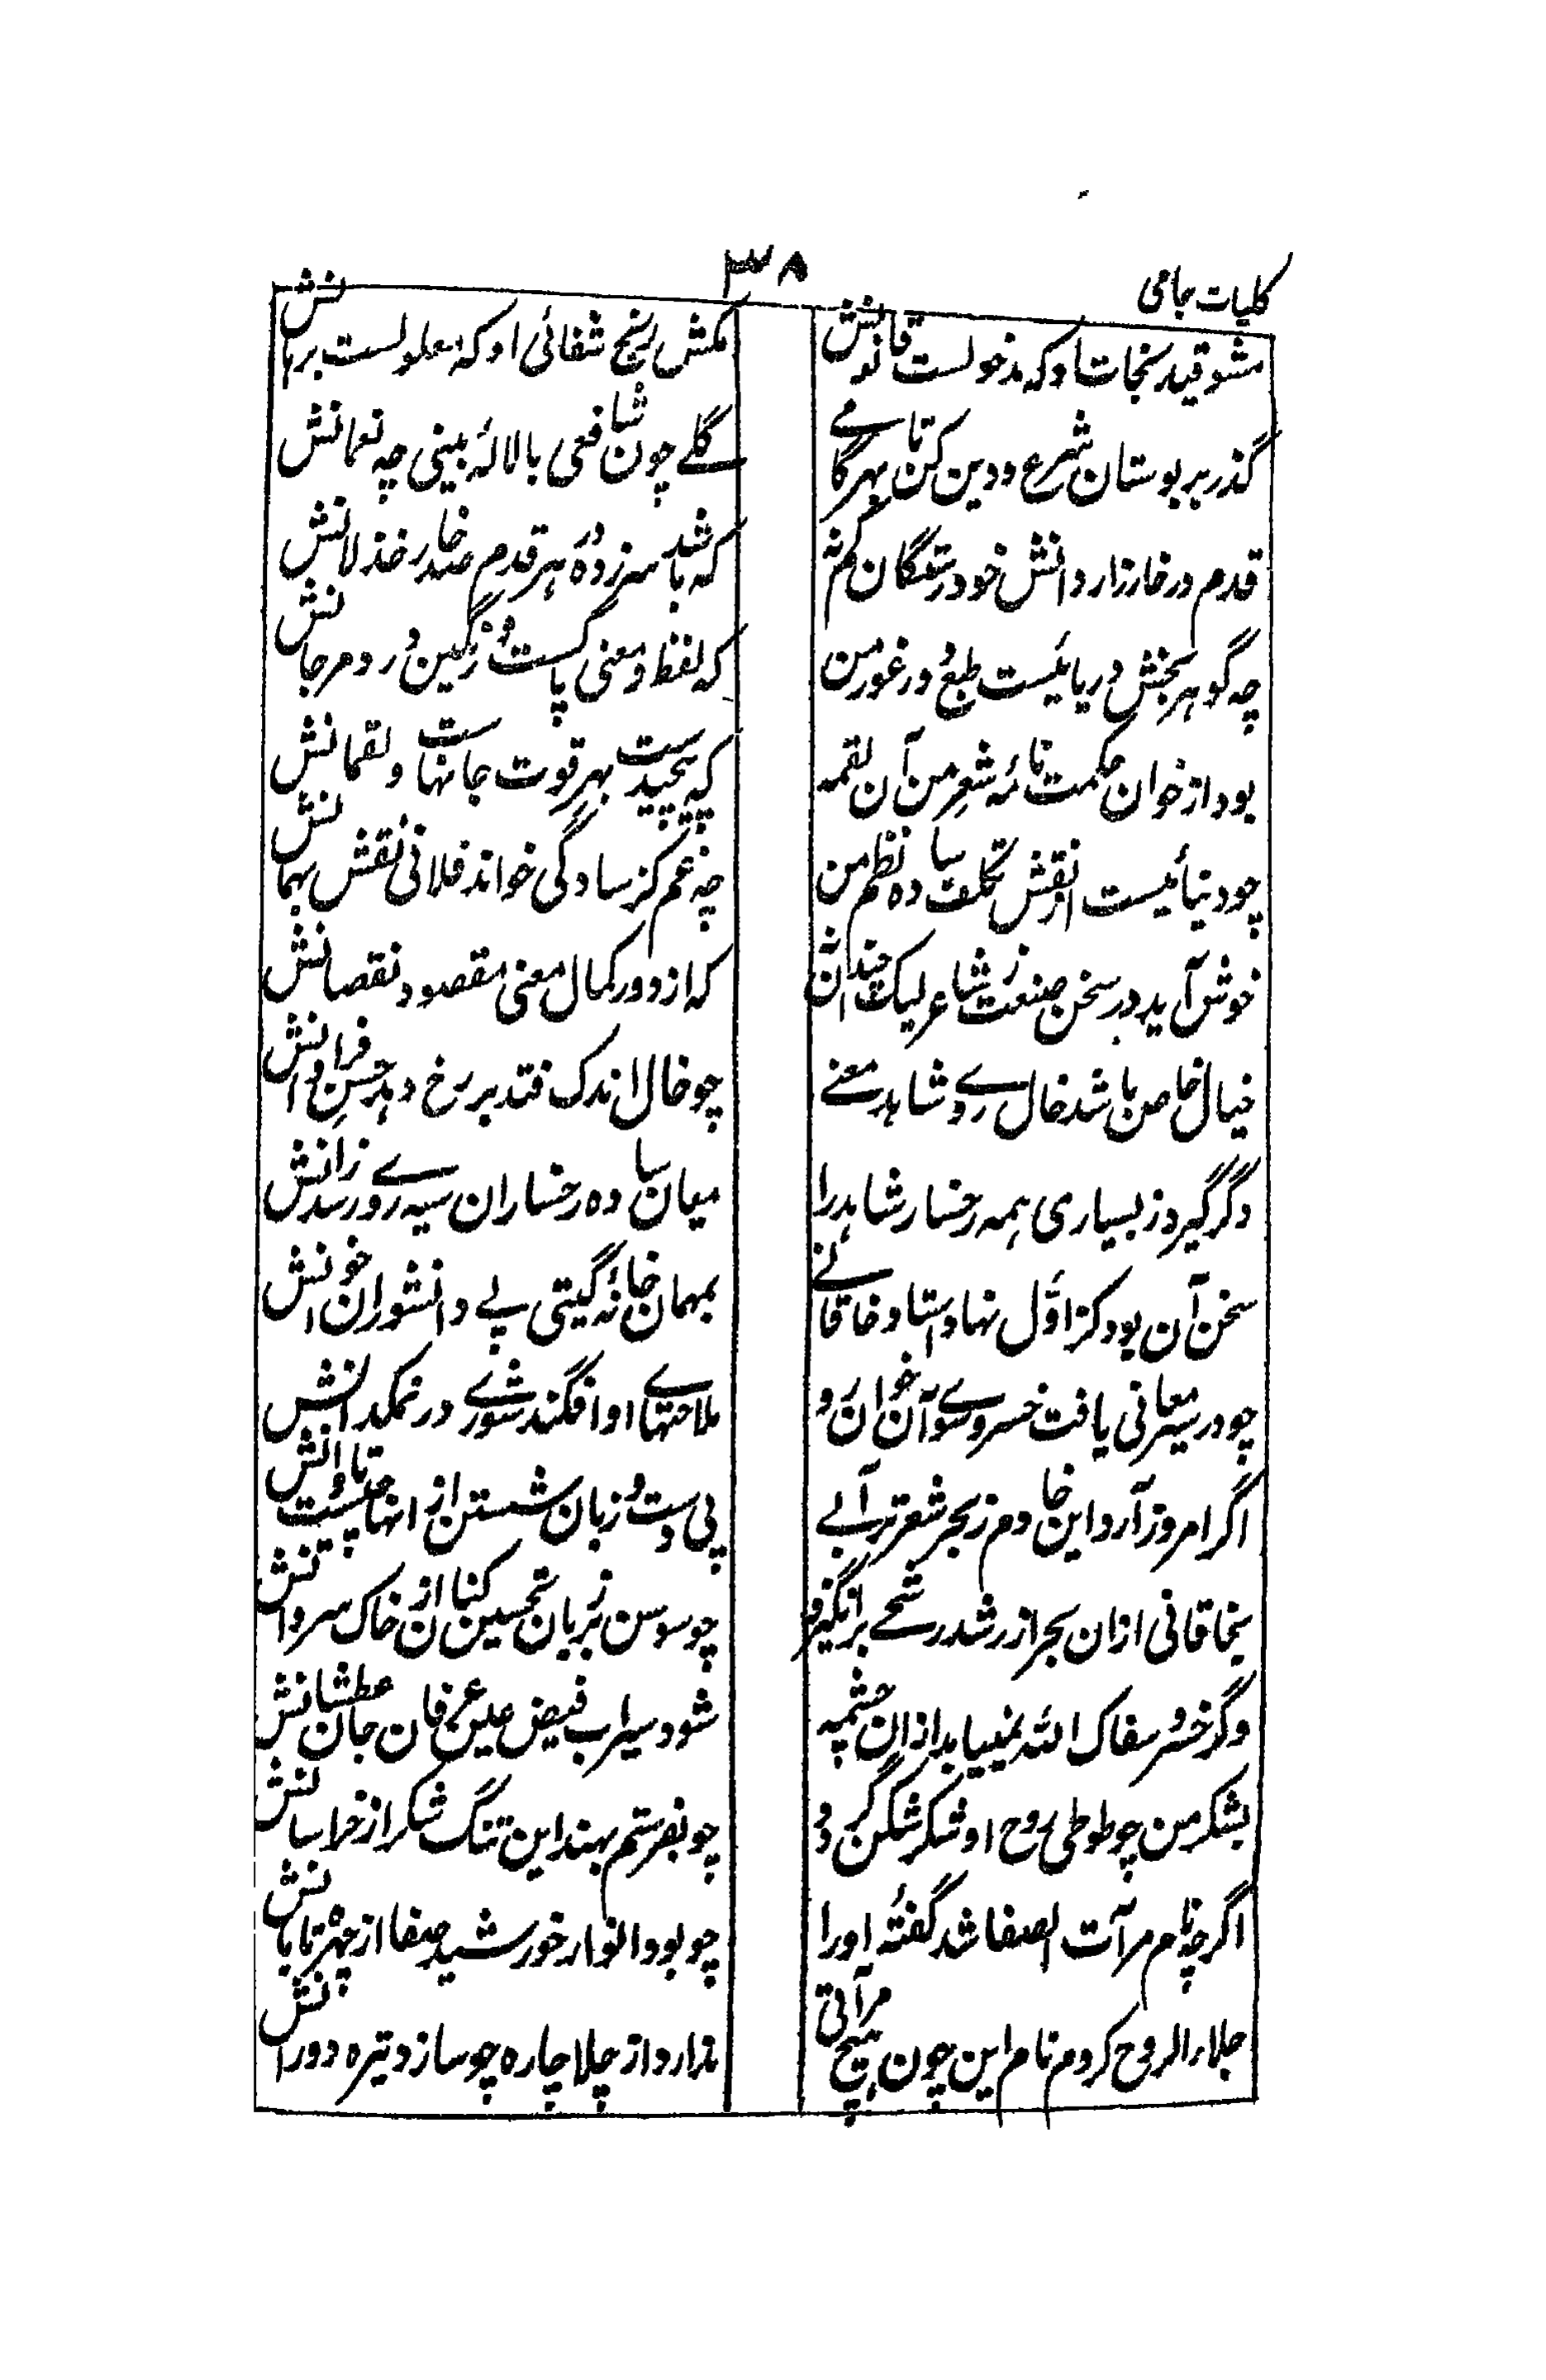 کلیات جامی
۳۸
مشو قید نجات او که مدخولست قانونش
مکش رنج شفائی او که معلولست برهانش
گذر بر بوستان شرع و دین کن تا بهر گامے
گلے چون شافعی با لالهٔ بینی چه نعمانش
قدم در خارزار دانش خود رستگان کم نه
که باشد سرزده در هر قدم صد خار خذلانش
چه گوهر بخش دریائیست طبع و در غور من
که لفظ و معنی پاکست و رنگین در و مرجانش
بود از خوان حکمت نامهٔ شعر من آن لقمه
که پیچیدست بهر قوت جانهاست و لقمانش
چو دنیائیست از نقش تکلف ساده نظم من
چه غم کز سادگی خواند فلانی نقش بهمانش
خوش آید در سخن صنعت ز شاعر لیک چندان
که از دور کمال معنی مقصود نقصانش
خیال خاص باشد خال روے شاهد معنے
چو خال اندک فتد بر رخ دهد حسن فراوانش
دگر گیرد ز بسیاری همه رخسار شاهد را
میان ساده رخساران سیه روے رسد زانش
سخن آن بود کز اوّل نهاد استاد خاقانے
بمهمان خانهٔ گیتی پے دانشوران خوانش
چو در سیر معانی یافت خسرو سوے آن خوان رو
ملاحتهاے او افگند شورے در نمکدانش
اگر امروز آرد این خادم ز بحر شعر تر آبے
پی دست و زبان شستن از انها چیست تاوانش
بخاقانی ازان بحر از رشد رشحے برانگیزد
چو سوسن تر زبان تحسین کنان از خاک سروانش
وگر خسرو سفاک الله نمییابد ازان چشمه
شود سیراب فیض عین عرفان جان عطشانش
بشکر من چو طوطی روح او شکر شکن گردد
چو بفرستم بهند این تنگ شکر از خراسانش
اگرچه نام مرآت الصفا شد گفتهٔ او را
چو بود انوار خورشید صفا از چهر تابانش
جلاء الروح کردم نام این چون هیچ مرآتی
ندارد از جلا چاره چو سازد تیره دورانش